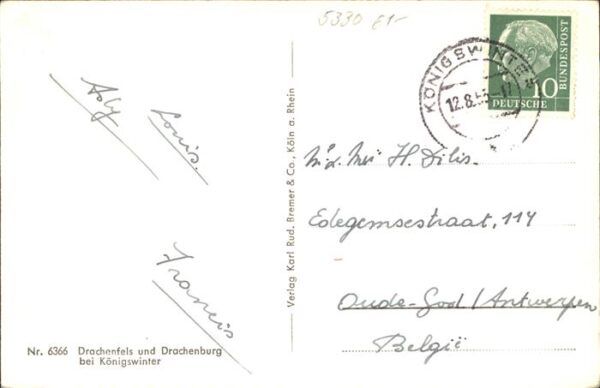 5330 £1-
KÖNIGSWINTER
12.8.55-17
DEUTSCHE
BUNDESPOST
10
Louis.
Francis
H. Dilis.
Edegemsestraat, 114
Oude-God / Antwerpen
België
Verlag Karl Rud. Bremer & Co., Köln a. Rhein
Nr. 6366 Drachenfels und Drachenburg
bei Königswinter